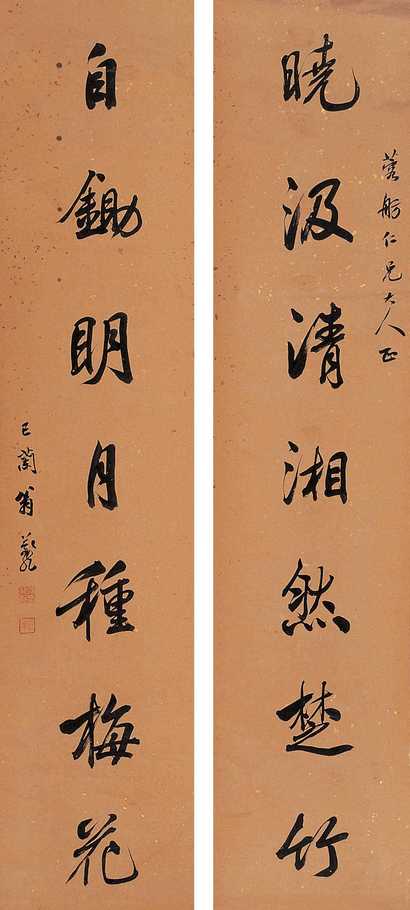 蓉舫仁兄大人正
曉汲清湘然楚竹
自鋤明月種梅花
巳蘭翁